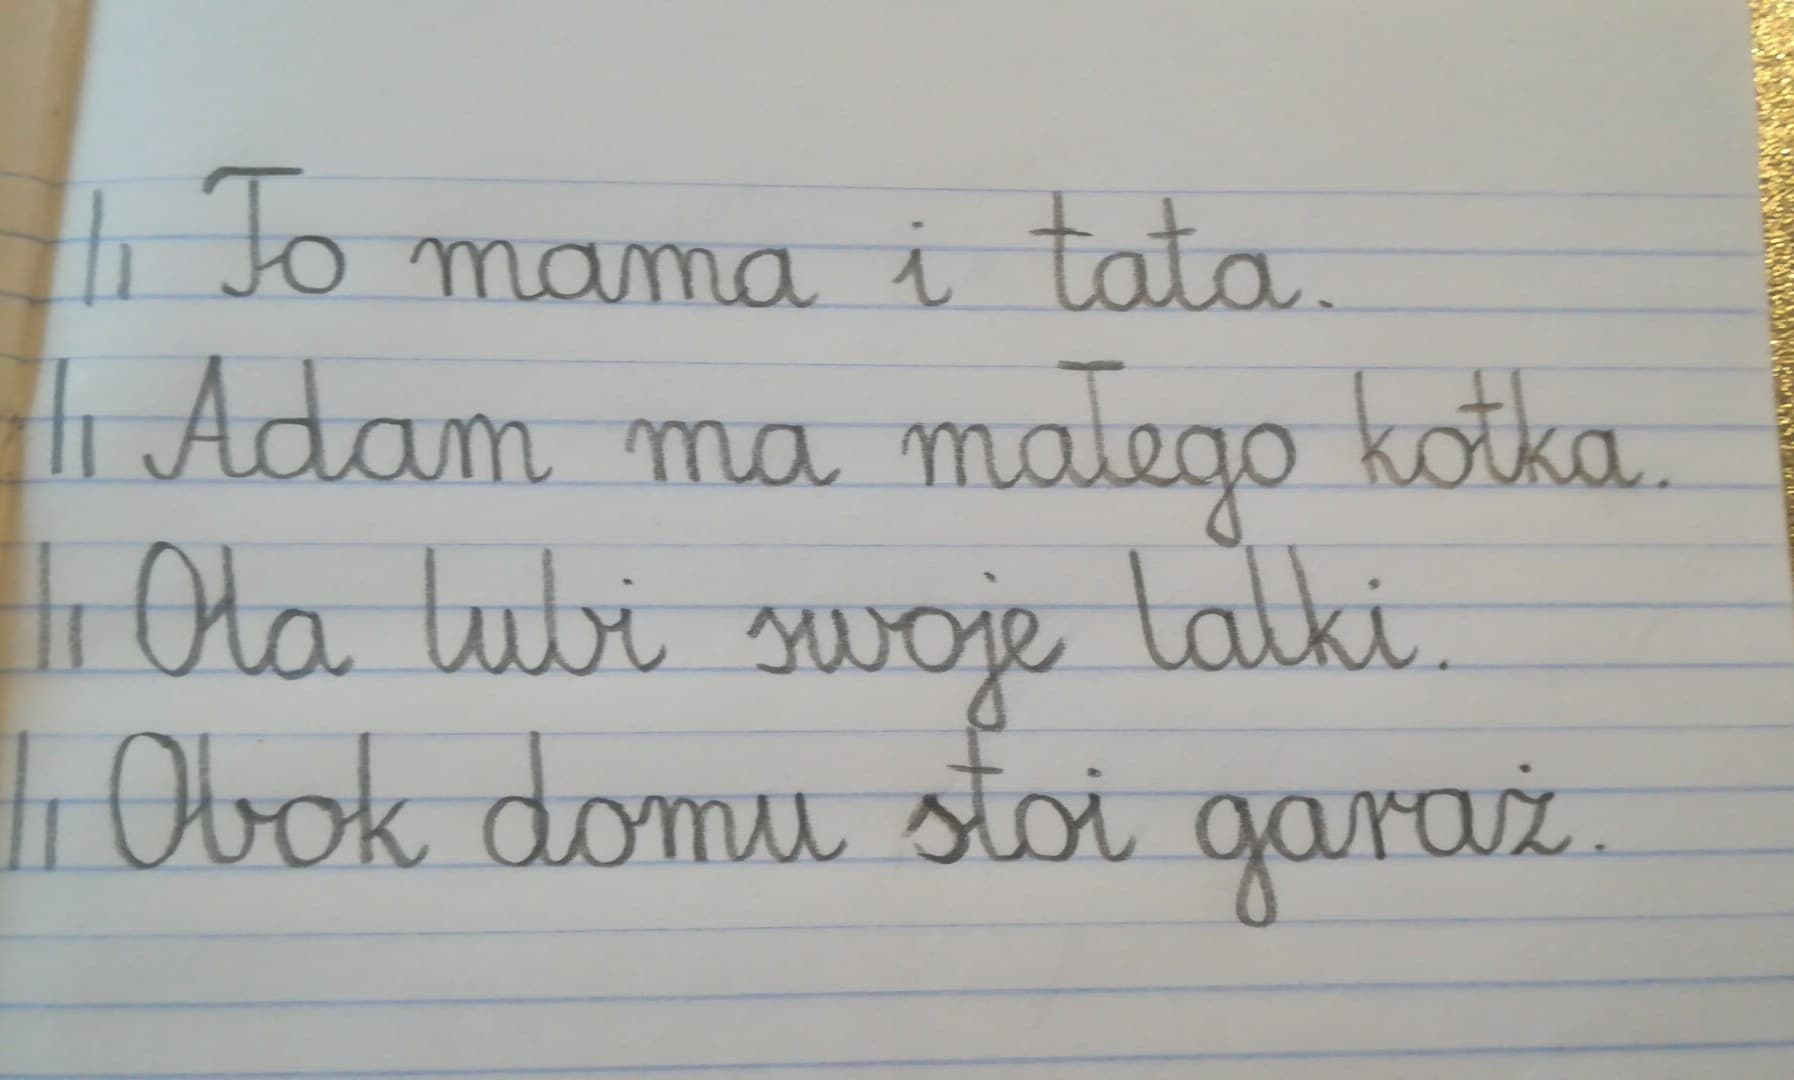 To mama i tata.
Adam ma małego kotka.
Ola lubi swoje lalki.
Obok domu stoi garaż.